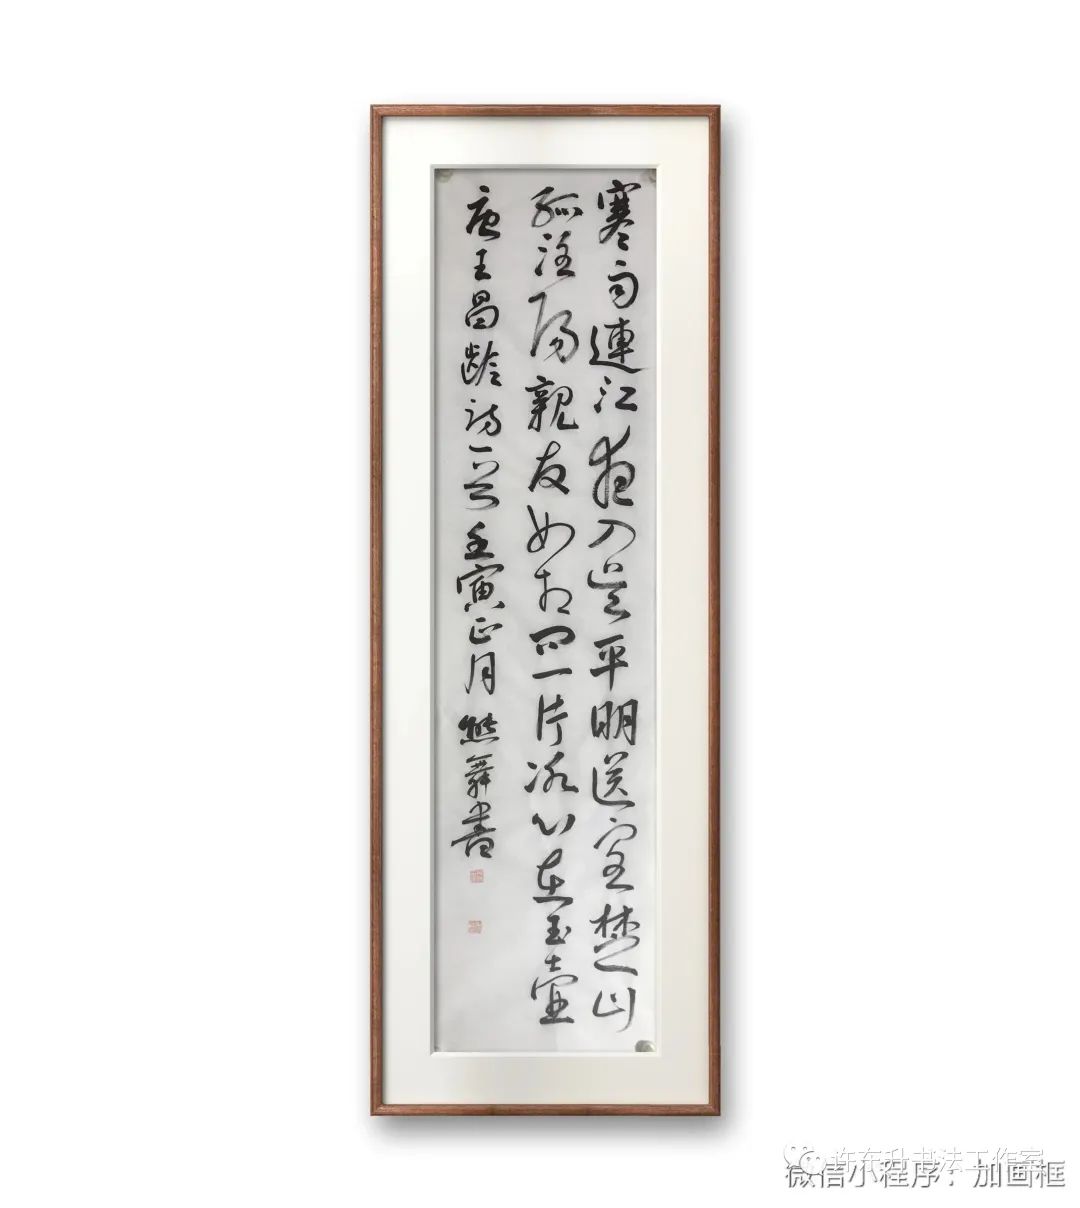 寒雨連江夜入吳平明送客楚山
孤洛陽親友如相問一片冰心在玉壺
唐王昌龄詩一首壬寅正月熊舞書
许东升书法工作室
微信小程序：加画框